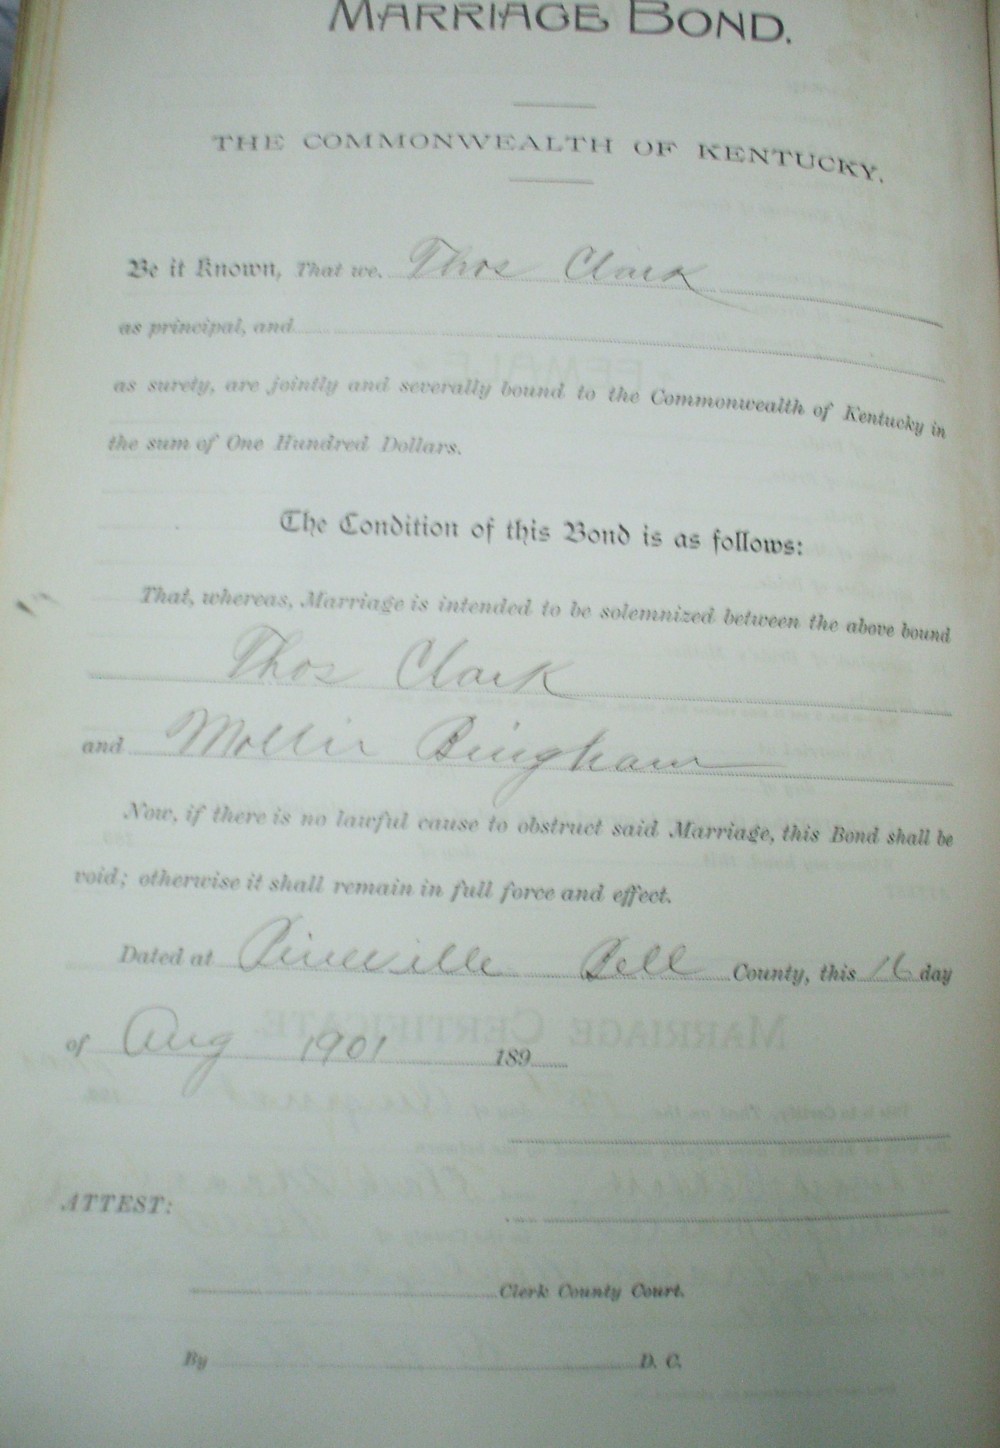 MARRIAGE BOND.
THE COMMONWEALTH OF KENTUCKY.
Be it Known, That we, Thos Clark
as principal, and
as surety, are jointly and severally bound to the Commonwealth of Kentucky in
the sum of One Hundred Dollars.
The Condition of this Bond is as follows:
That, whereas, Marriage is intended to be solemnized between the above bound
Thos Clark
and Mollie Bingham
Now, if there is no lawful cause to obstruct said Marriage, this Bond shall be
void; otherwise it shall remain in full force and effect.
Dated at Pineville Bell County, this 16 day
of Aug 1901 189
ATTEST:
Clerk County Court.
By D. C.